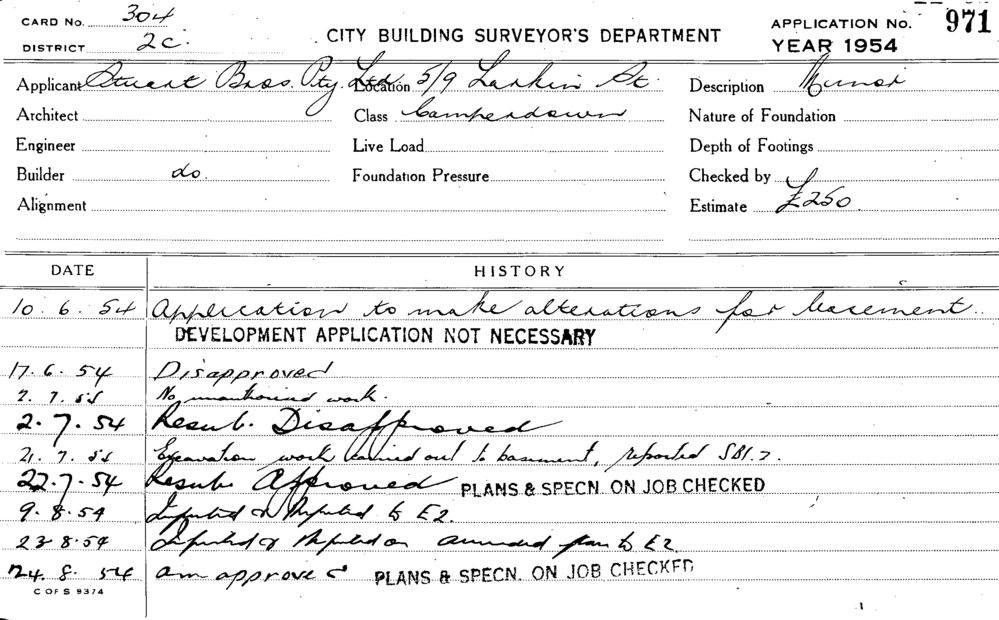 CARD No. 304
DISTRICT 2C.
CITY BUILDING SURVEYOR'S DEPARTMENT
APPLICATION No. 971
YEAR 1954
Applicant Stuart Bros. Pty. Ltd. Location 5/9 Larkin St. Description Minor
Architect Class Camperdown Nature of Foundation
Engineer Live Load Depth of Footings
Builder do. Foundation Pressure Checked by
Alignment Estimate £250.
DATE HISTORY
10.6.54 Application to make alterations for basement.
DEVELOPMENT APPLICATION NOT NECESSARY
17.6.54 Disapproved
2.7.54 No unauthorised work.
2.7.54 Resub. Disapproved
21.7.54 Excavation work carried out to basement, reported
22.7.54 Resub. Approved PLANS & SPECN. ON JOB CHECKED
9.8.54 Inspected & Reported to E2.
23.8.54 Inspected & Reported on amended plan to E2
24.8.54 am approved PLANS & SPECN. ON JOB CHECKED
C OF S 9374